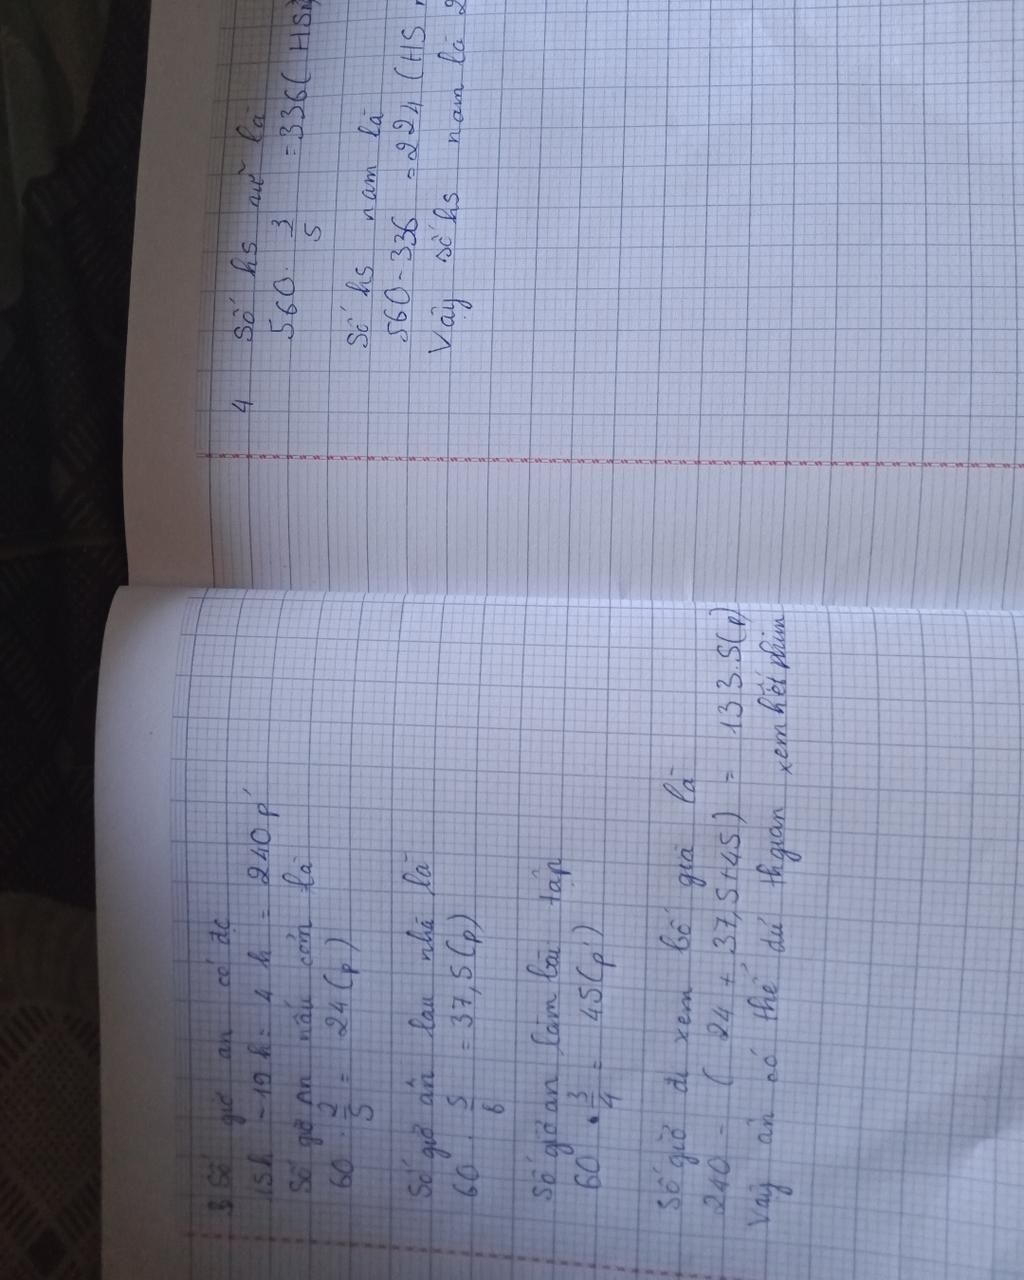 3 Số giờ an có đc
15h - 19h = 4h = 240 p'
Số giờ An nấu cơm là
60 . 2/5 = 24 (p)
Số giờ ân lau nhà là
60 . 5/6 = 37,5 (p)
Số giờ an làm bài tập
60 . 3/4 = 45 (p')
Số giờ để xem bố già là
240 - ( 24 + 37,5 + 45 ) = 133.5 (p)
Vậy ân có thể đủ thgian xem hết phim
4 Số hs nữ là
560 . 3/5 = 336 ( HS
Số hs nam là
560 - 336 = 224 (HS
Vậy số hs nam là 2